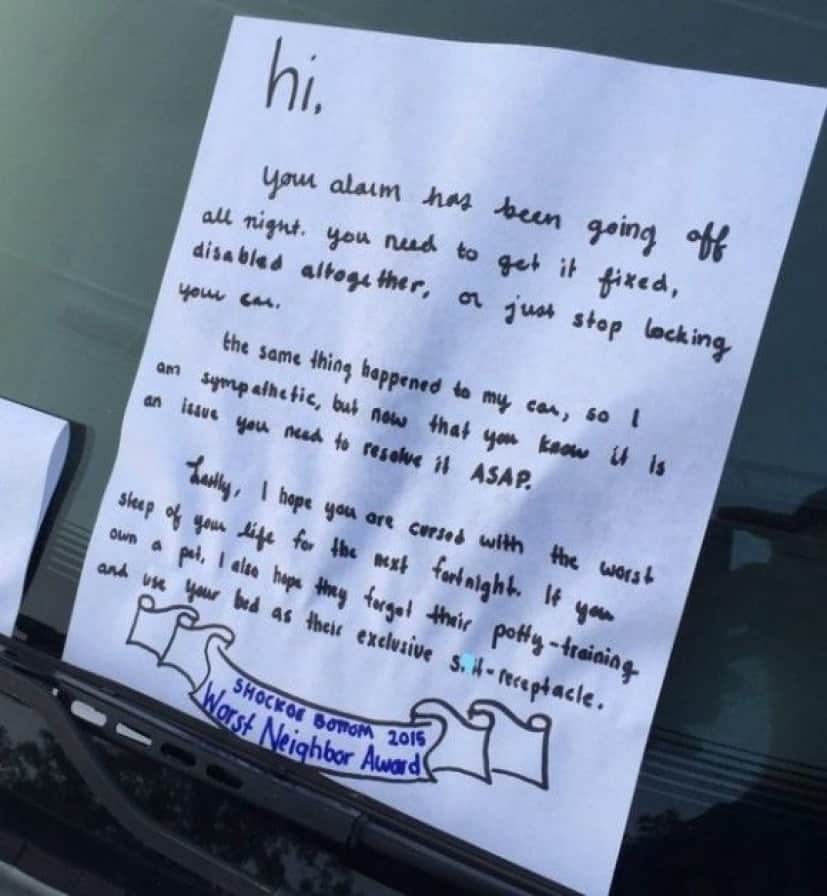 hi,
your alarm has been going off
all night. you need to get it fixed,
disabled altogether, or just stop locking
your car.
the same thing happened to my car, so I
am sympathetic, but now that you know it is
an issue you need to resolve it ASAP.
Lastly, I hope you are cursed with the worst
sleep of your life for the next fortnight. If you
own a pet, I also hope they forget their potty-training
and use your bed as their exclusive s. it-receptacle.
SHOCKOE BOTTOM 2015
Worst Neighbor Award